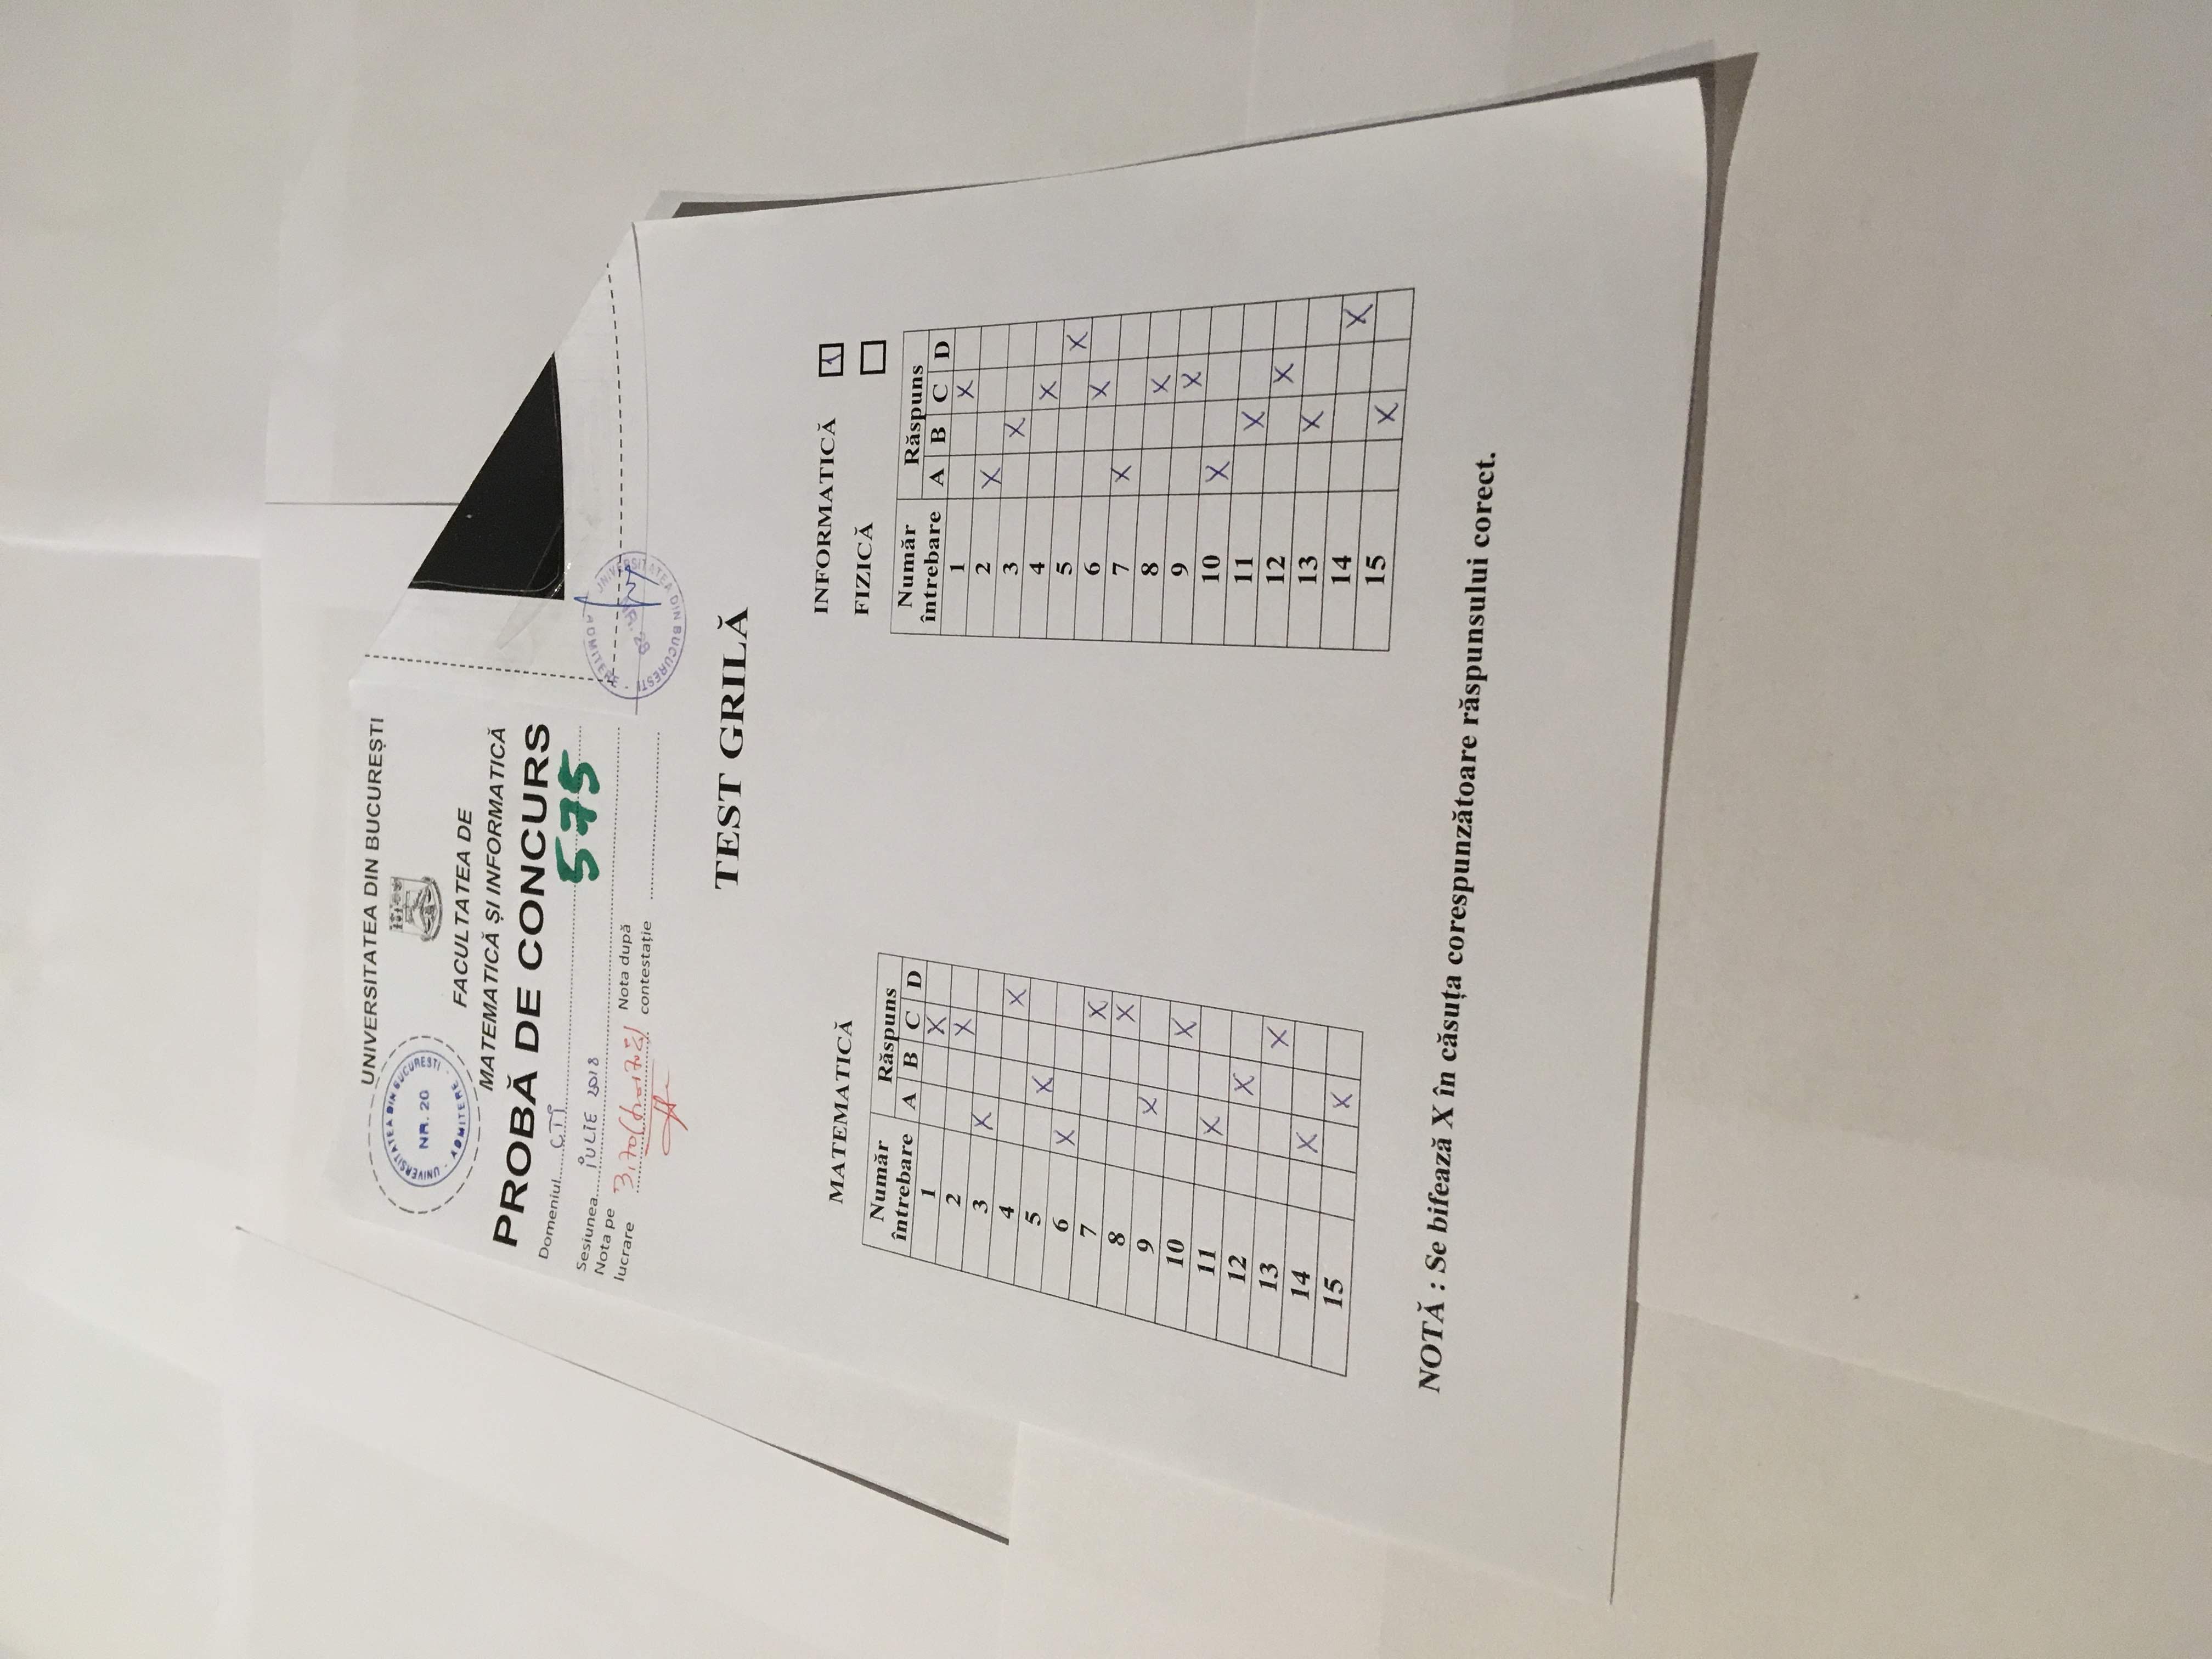 UNIVERSITATEA DIN BUCUREȘTI
UNIVERSITATEA DIN BUCUREȘTI
NR. 20
ADMITERE
FACULTATEA DE
MATEMATICĂ ȘI INFORMATICĂ
PROBĂ DE CONCURS
Domeniul CTI
575
Sesiunea IULIE 2018
Nota pe
lucrare 3,70
Nota după
contestație
UNIVERSITATEA DIN BUCUREȘTI
NR. 28
ADMITERE
TEST GRILĂ
MATEMATICĂ
Număr
întrebare
Răspuns
A B C D
1 X
2 X
3 X
4 X
5 X
6 X
7 X
8 X
9 X
10 X
11 X
12 X
13 X
14 X
15 X
INFORMATICĂ
FIZICĂ
Număr
întrebare
Răspuns
A B C D
1 X
2 X
3 X
4 X
5 X
6 X
7 X
8 X
9 X
10 X
11 X
12 X
13 X
14 X
15 X
NOTĂ : Se bifează X în căsuța corespunzătoare răspunsului corect.